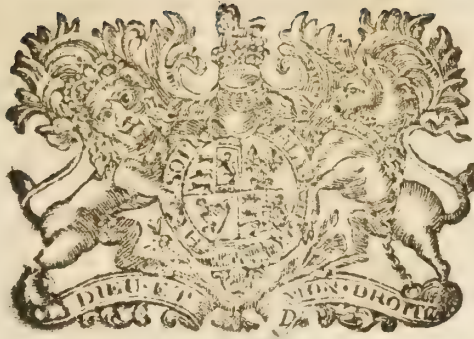 DIEU·ET MON·DROIT
D